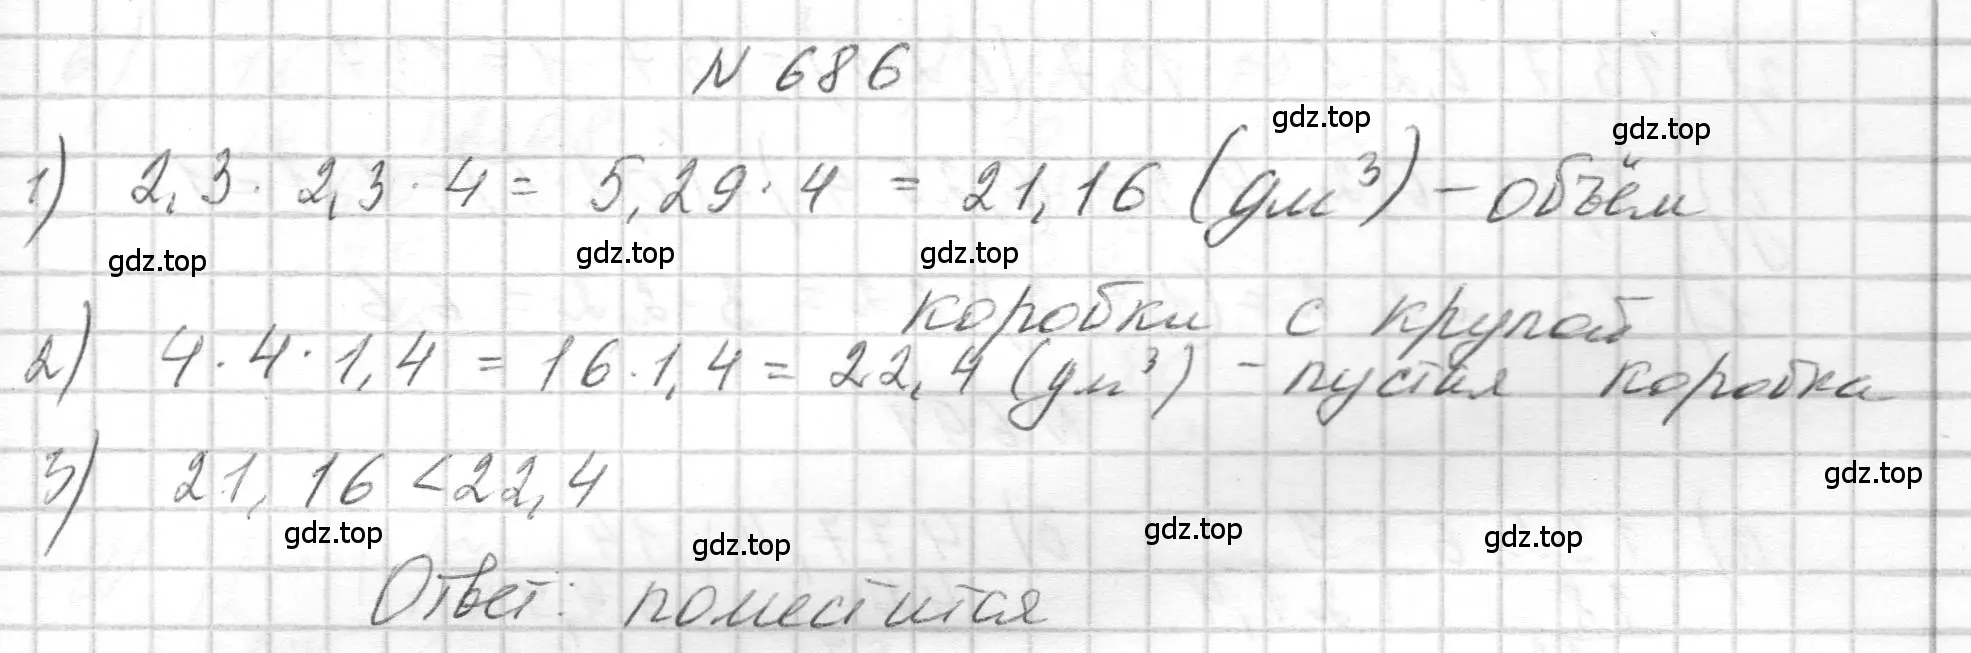 N 686
gdz.top
gdz.top
1) 2,3 · 2,3 · 4 = 5,29 · 4 = 21,16 (дм³) – объём
gdz.top
gdz.top
gdz.top
коробки с крупой
2) 4 · 4 · 1,4 = 16 · 1,4 = 22,4 (дм³) – пустая коробка
3) 21,16 < 22,4
gdz.top
gdz.top
gdz.top
gdz.top
gdz.top
Ответ: поместится